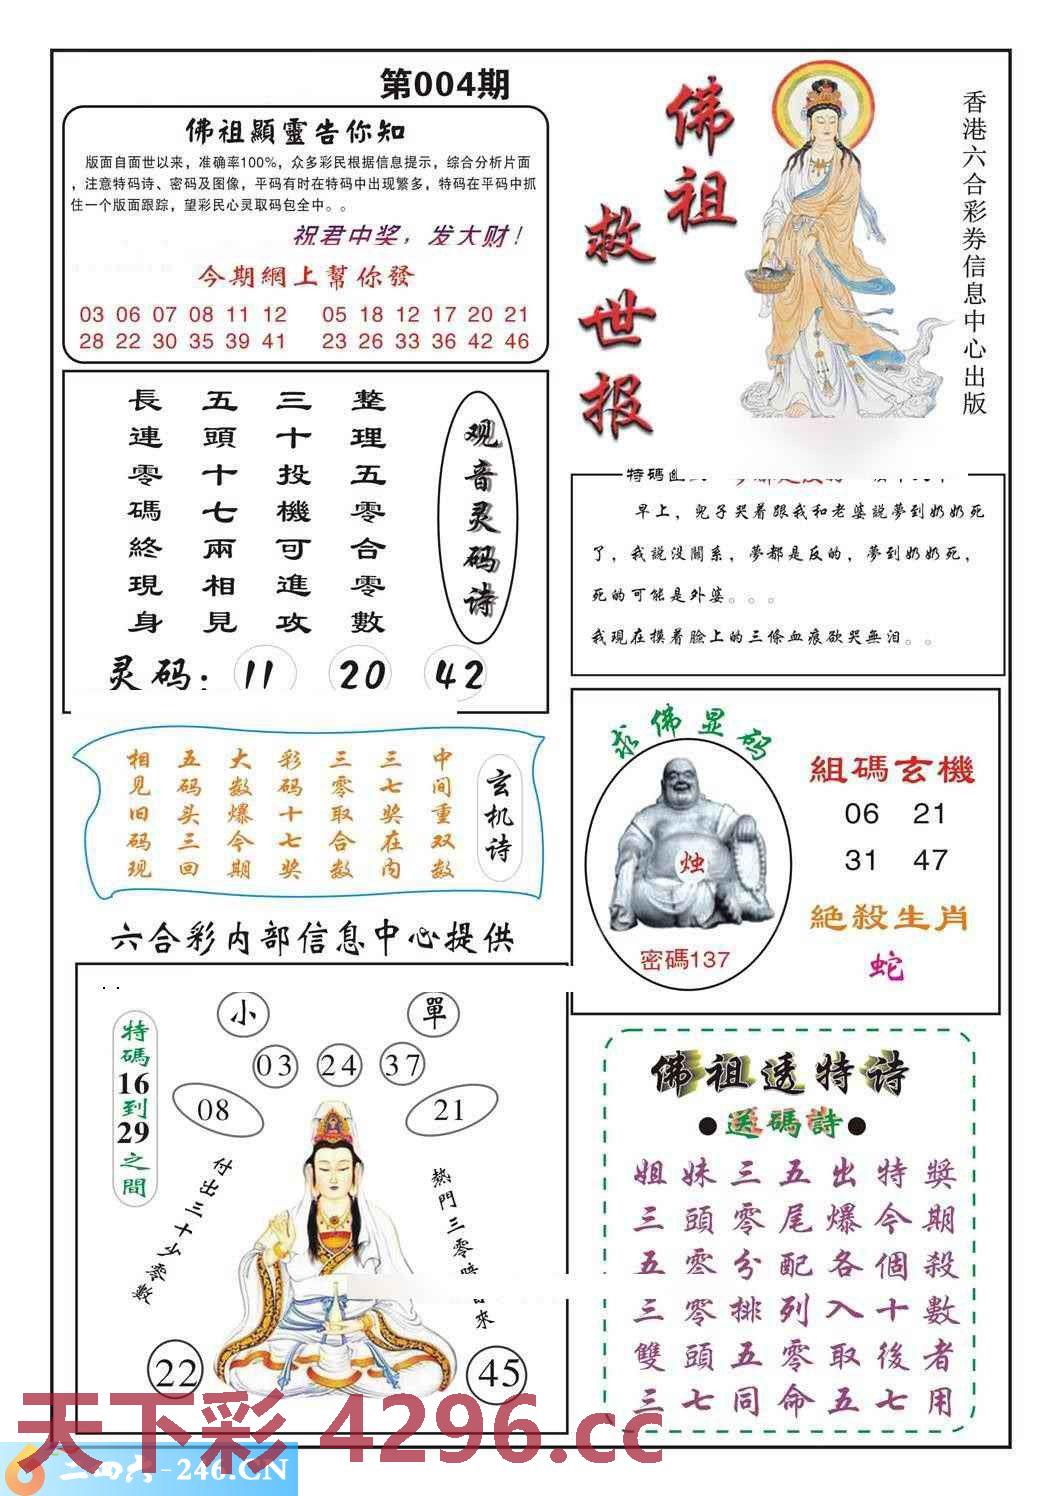 第004期
佛祖顯靈告你知
版面自面世以来，准确率100%，众多彩民根据信息提示，综合分析片面
，注意特码诗、密码及图像，平码有时在特码中出现繁多，特码在平码中抓
住一个版面跟踪，望彩民心灵取码包全中。。
祝君中奖，发大财！
今期網上幫你發
03 06 07 08 11 12 05 18 12 17 20 21
28 22 30 35 39 41 23 26 33 36 42 46
佛祖
救世报
香港六合彩券信息中心出版
观音灵码诗
整理五零合零數
三十投機可進攻
五頭十七兩相見
長連零碼終現身
灵码：11 20 42
特碼
早上，兒子哭着跟我和老婆説夢到奶奶死
了，我説没關系，夢都是反的，夢到奶奶死，
死的可能是外婆。。。
我現在摸着臉上的三條血痕欲哭無泪。。
玄机诗
中间重双数
三七奖在内
三零取合数
彩码十七奖
大数爆今期
五码头三回
相见旧码现
求佛显码
烛
密碼137
組碼玄機
06 21
31 47
絶殺生肖
蛇
六合彩内部信息中心提供
小 單
03 24 37
08 21
特碼16到29之間
付出三十少零數
熱門三零
來
22 45
佛祖透特诗
●送碼詩●
姐妹三五出特獎
三頭零尾爆今期
五零分配各個殺
三零排列入十數
雙頭五零取後者
三七同命五七用
天下彩 4296.cc
二四六-246.CN